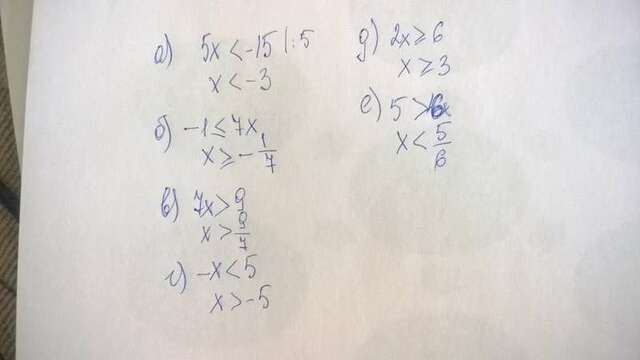 а) 5x < -15 | :5
x < -3
б) -1 ≤ 7x
x ≥ -1/7
в) 7x > 9
x > 9/7
г) -x < 5
x > -5
д) 2x ≥ 6
x ≥ 3
е) 5 > 6x
x < 5/6